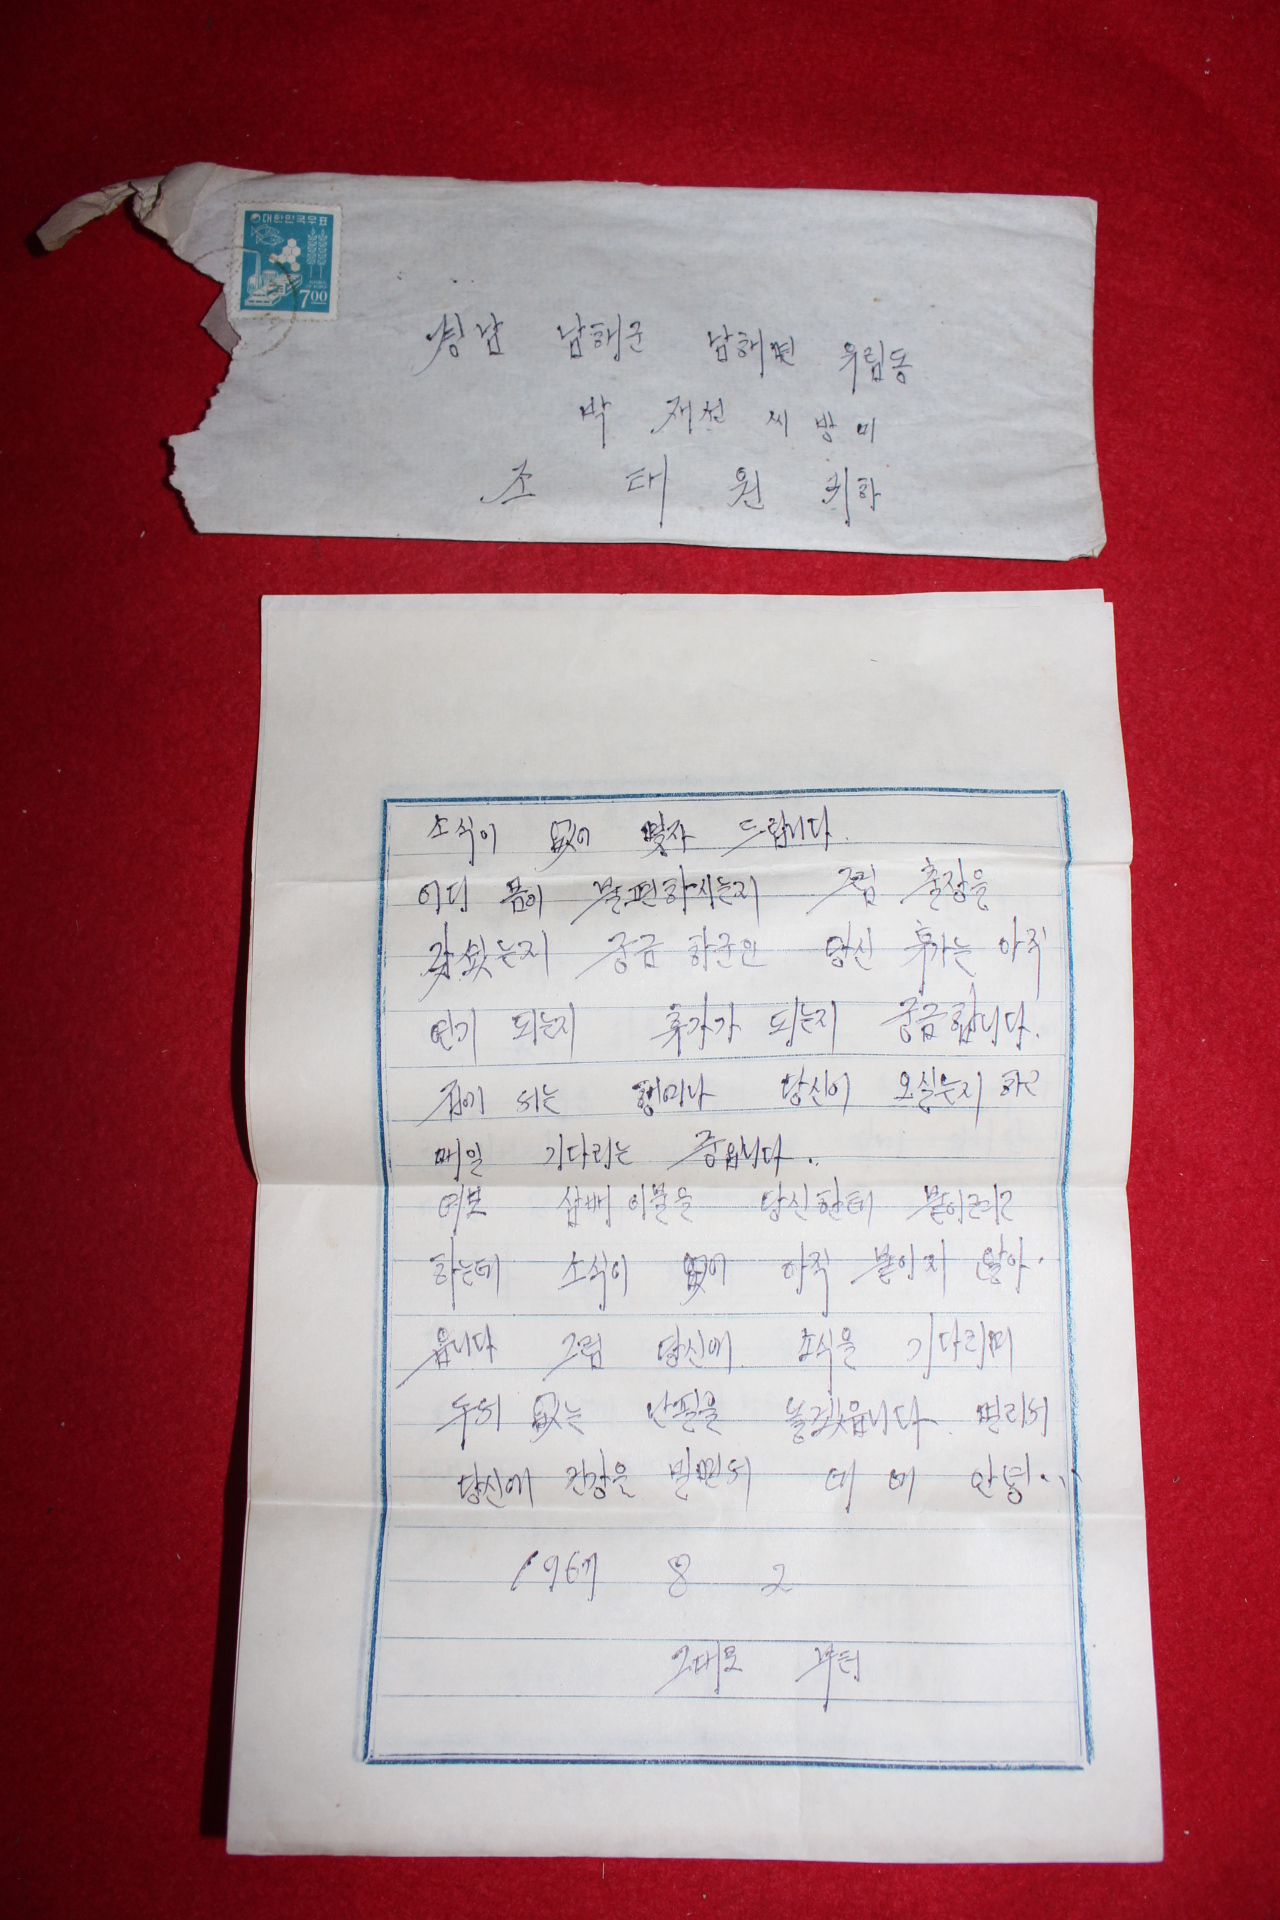 대한민국우표
7.00
경남 남해군 남해면 우림동
박 재선 씨 방 미
조 대 원 귀하
소식이 없이 몇자 드립니다.
어디 몸이 불편하시는지 그럼 출장을
갔섰는지 궁금 하군요 당신 휴가는 아직
연기 되는지 휴가가 되는지 궁금합니다.
집에 서는 행여나 당신이 오실는지 하고
매일 기다리는 중입니다..
여보 삼베 이불을 당신한테 붙이려고
하는데 소식이 없어 아직 붙이지 않아.
읍니다 그럼 당신에 소식을 기다리며
두서 없는 난필을 놓겠읍니다. 멀리서
당신에 건강을 빌면서 이 에 안녕...
1967 8 2
그대로 부터